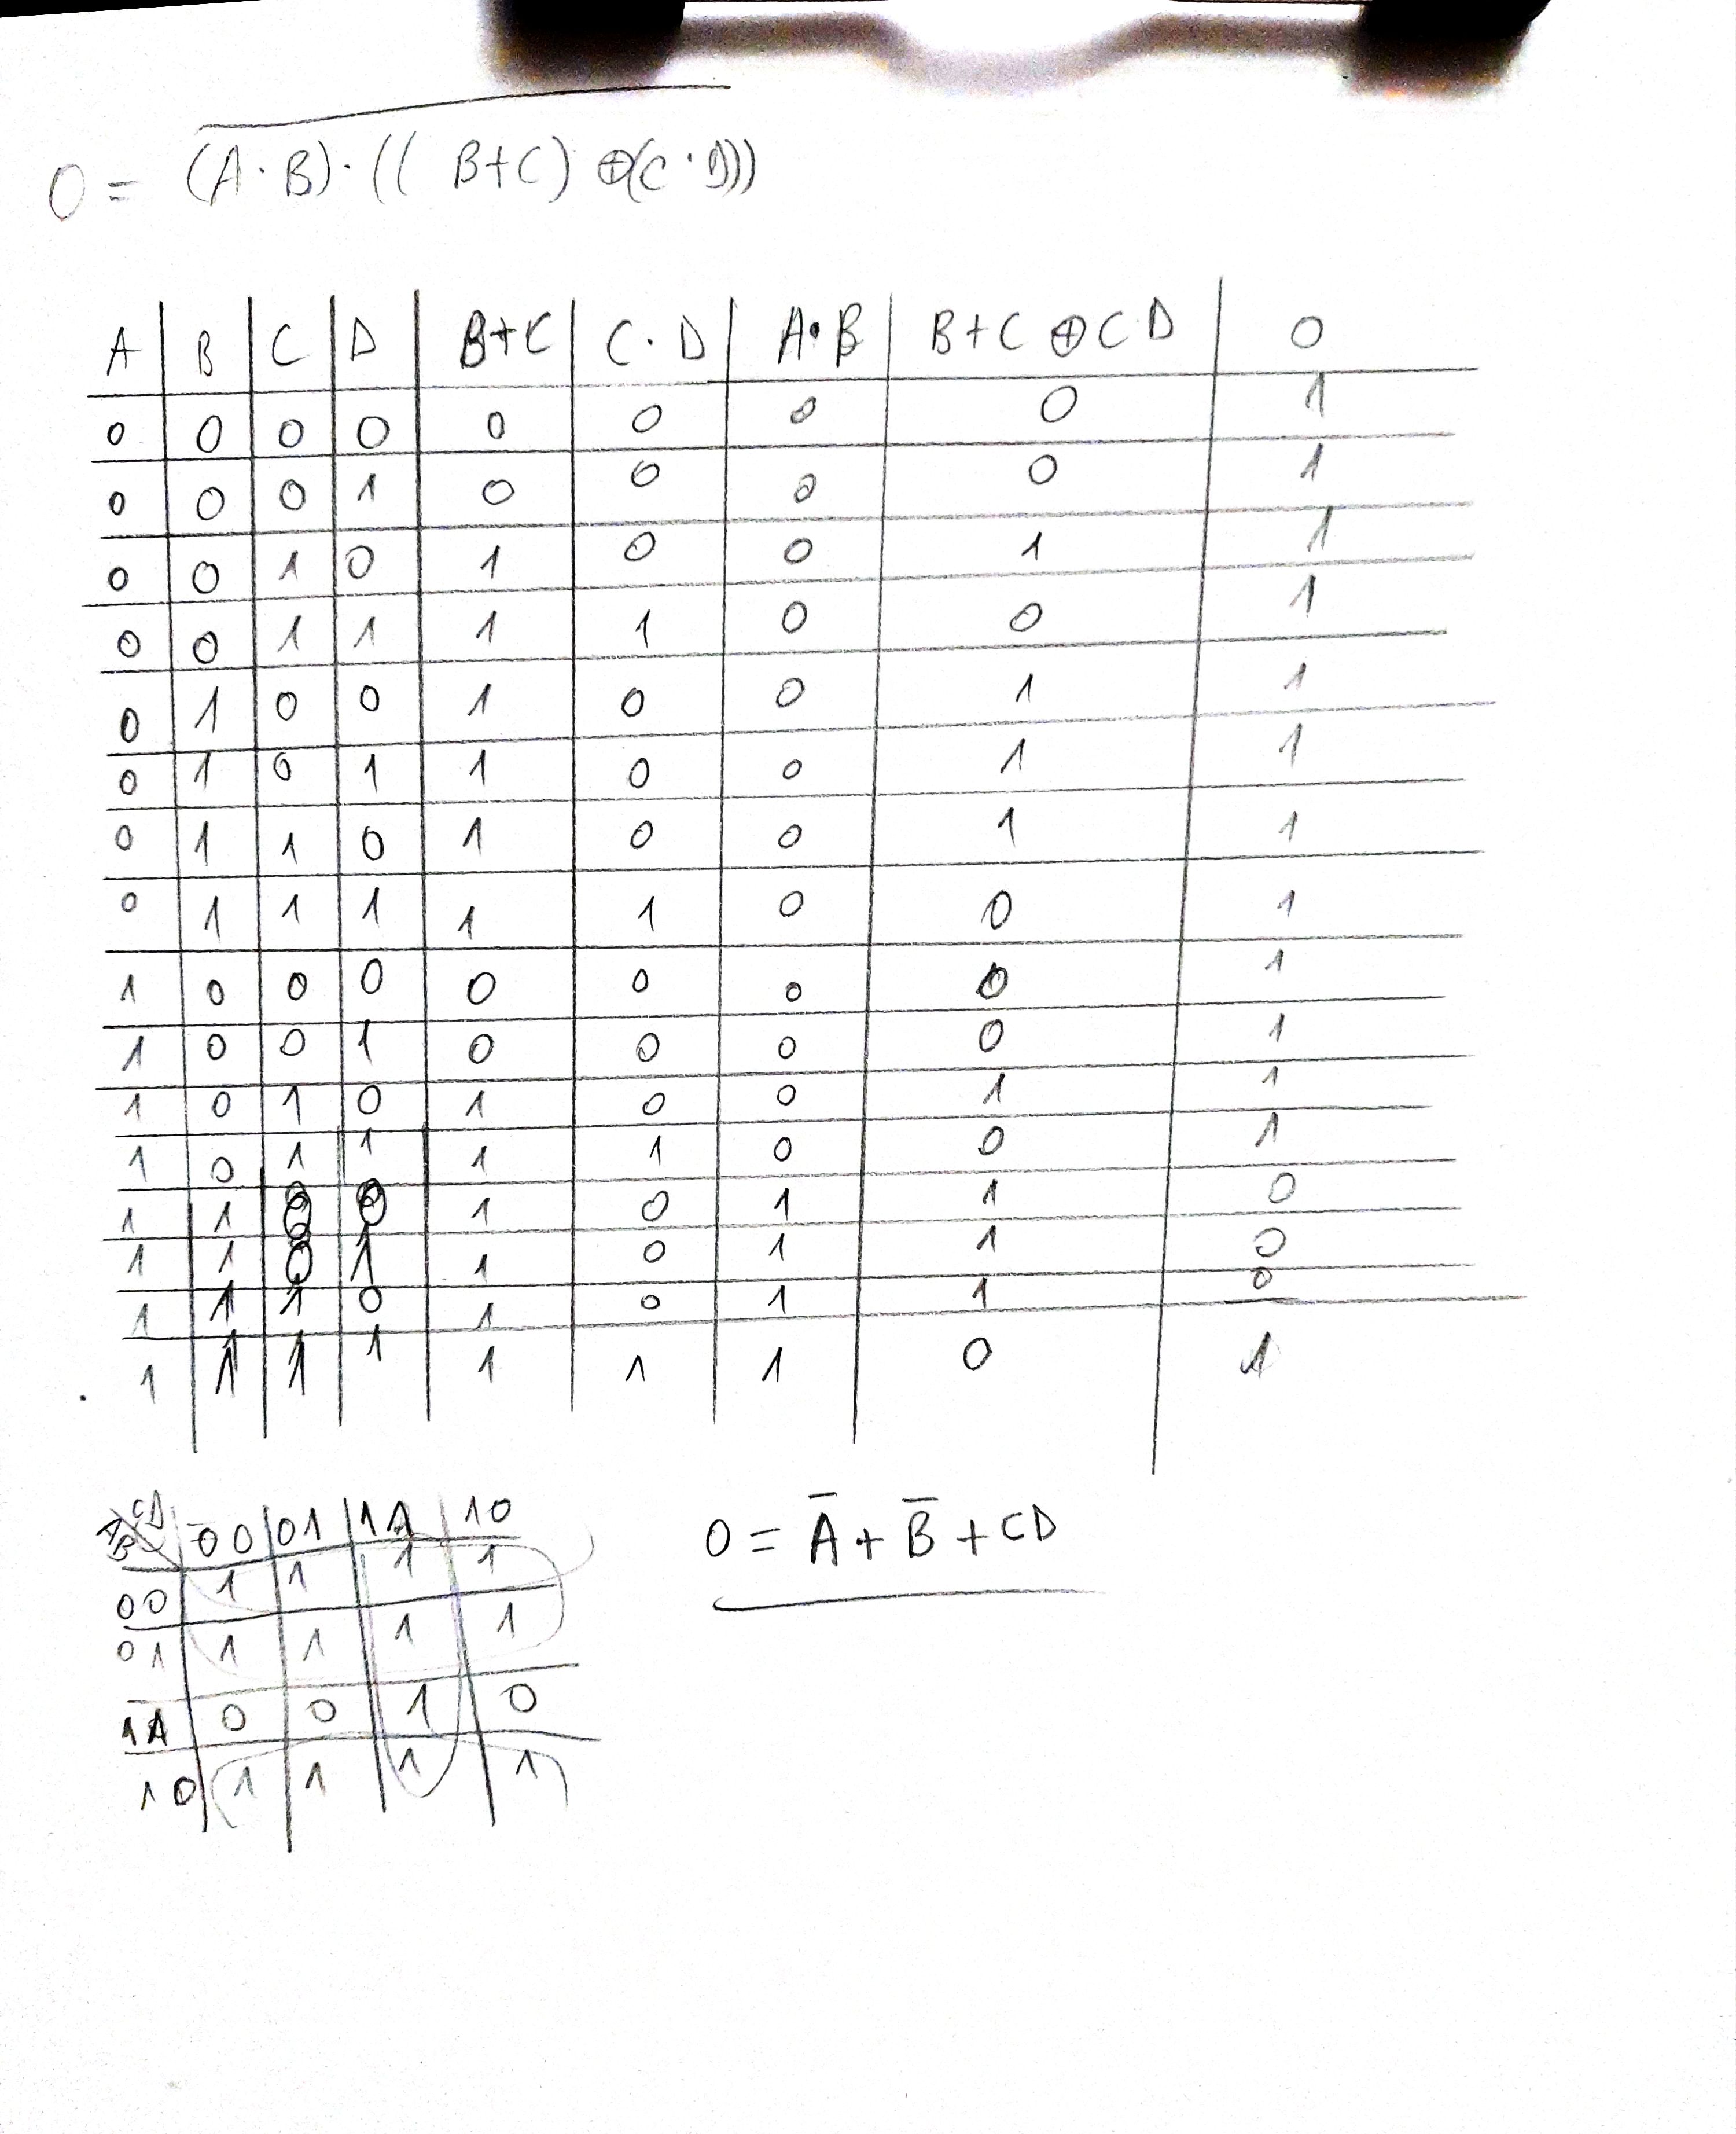 O = \overline{(A·B)·((B+C) ⊕(C·D)))}
A B C D B+C C·D A·B B+C ⊕ C D O
0 0 0 0 0 0 0 0 1
0 0 0 1 0 0 0 0 1
0 0 1 0 1 0 0 1 1
0 0 1 1 1 1 0 0 1
0 1 0 0 1 0 0 1 1
0 1 0 1 1 0 0 1 1
0 1 1 0 1 0 0 1 1
0 1 1 1 1 1 0 0 1
1 0 0 0 0 0 0 0 1
1 0 0 1 0 0 0 0 1
1 0 1 0 1 0 0 1 1
1 0 1 1 1 1 0 0 1
1 1 0 0 1 0 1 1 0
1 1 0 1 1 0 1 1 0
1 1 1 0 1 0 1 1 0
1 1 1 1 1 1 1 0 1
AB CD 00 01 11 10
00 1 1 1 1
01 1 1 1 1
11 0 0 1 0
10 1 1 1 1
O = A̅ + B̅ + CD